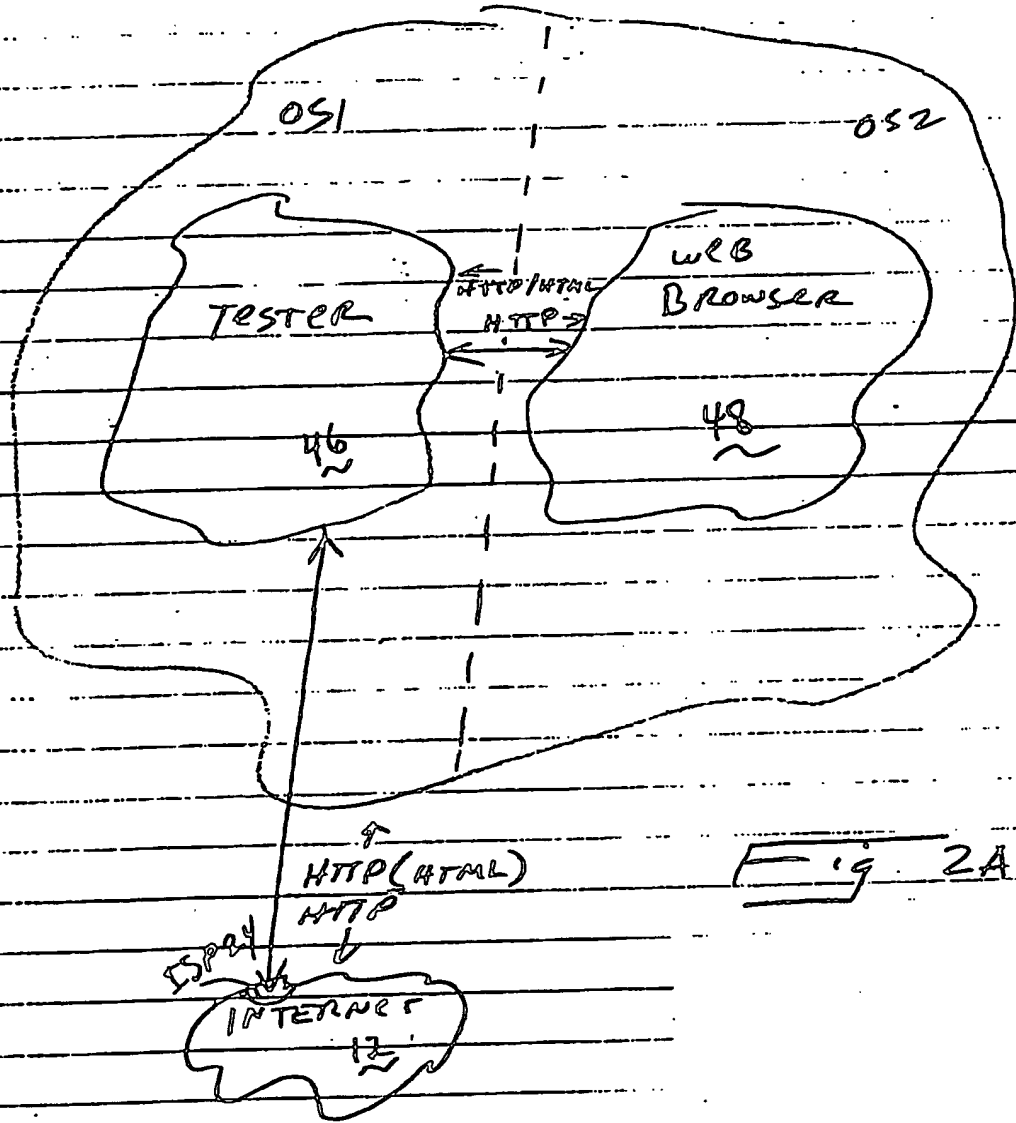 OS1
OS2
TESTER
46
←
HTTP/HTML
HTTP→
WEB
BROWSER
48
↑
HTTP(HTML)
HTTP
↓
Fig 2A
INTERNET
12